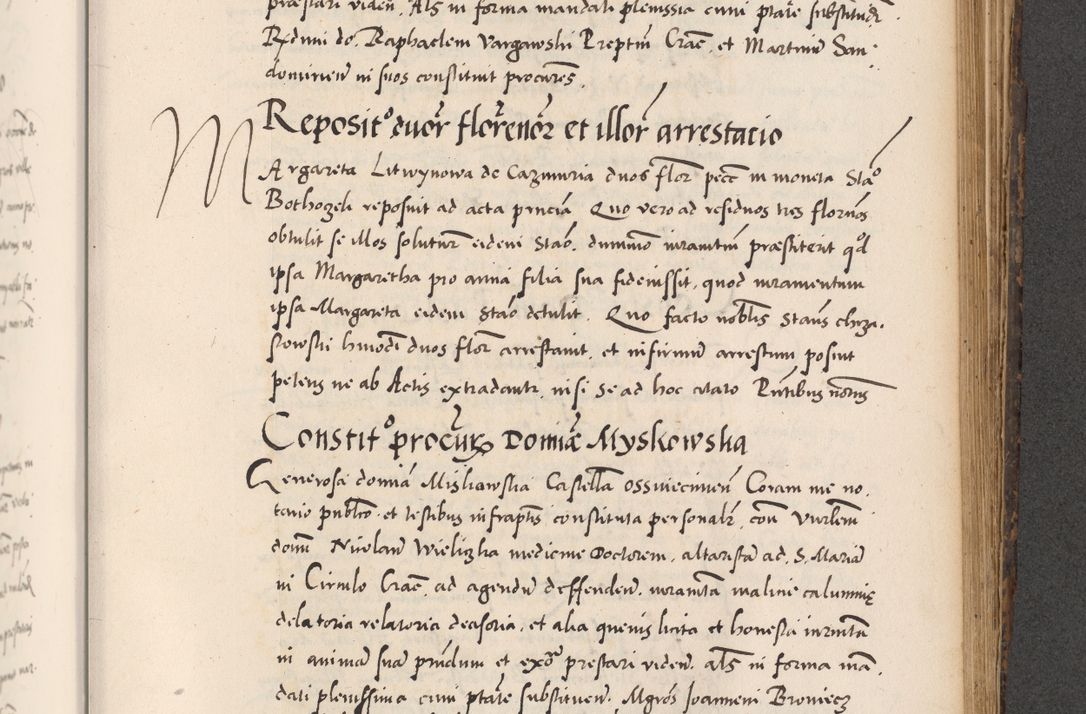 præstari viden. Als in forma mandati plenissia cum ptate substitud
Rdum do. Raphaelem Vargawski Preptm Crac. et Martinu San
dominen in suos constituit procures.
Reposit° duor florenor et illor arrestacio
Margareta Litwynowa de Cazimiria duos flor pecc in moneta Sta°
Bothozeli reposuit ad acta pncia. Quo vero ad residuos tres florenos
obtulit se illos solutur eidem Stao. dummo iuramtm præstiterit qd
ipsa Margaretha pro anna filia sua fideiussit. quod iuramentum
ipsa Margareta eidem Stao detulit. Quo facto noblis Staus chrza
stowski hmodi duos flor arrestauit, et in firmu arrestum posuit
petens ne ab Actis extradantr, nisi se ad hoc citato Pntibus notris
Constit° procur Domiæ Myskowska
Generosa domia Miskowska Castella Ossviecimen Coram me no
tario publico et testibus infraptis constituta personalr, con Virlem
donm Nicolau Wieliczka medicine Doctorem, altarista ad. S. Maria
in Circulo Crac, ad agendu deffendeu. iuramta malicie calumnię
delatoria relatoria deasoria, et alia quenis licita et honesta iuramta
in animam sua prndum et exo prestari viden. als in forma man
dati plenissima cum ptate substituen. Mgros Joannem Broniecz